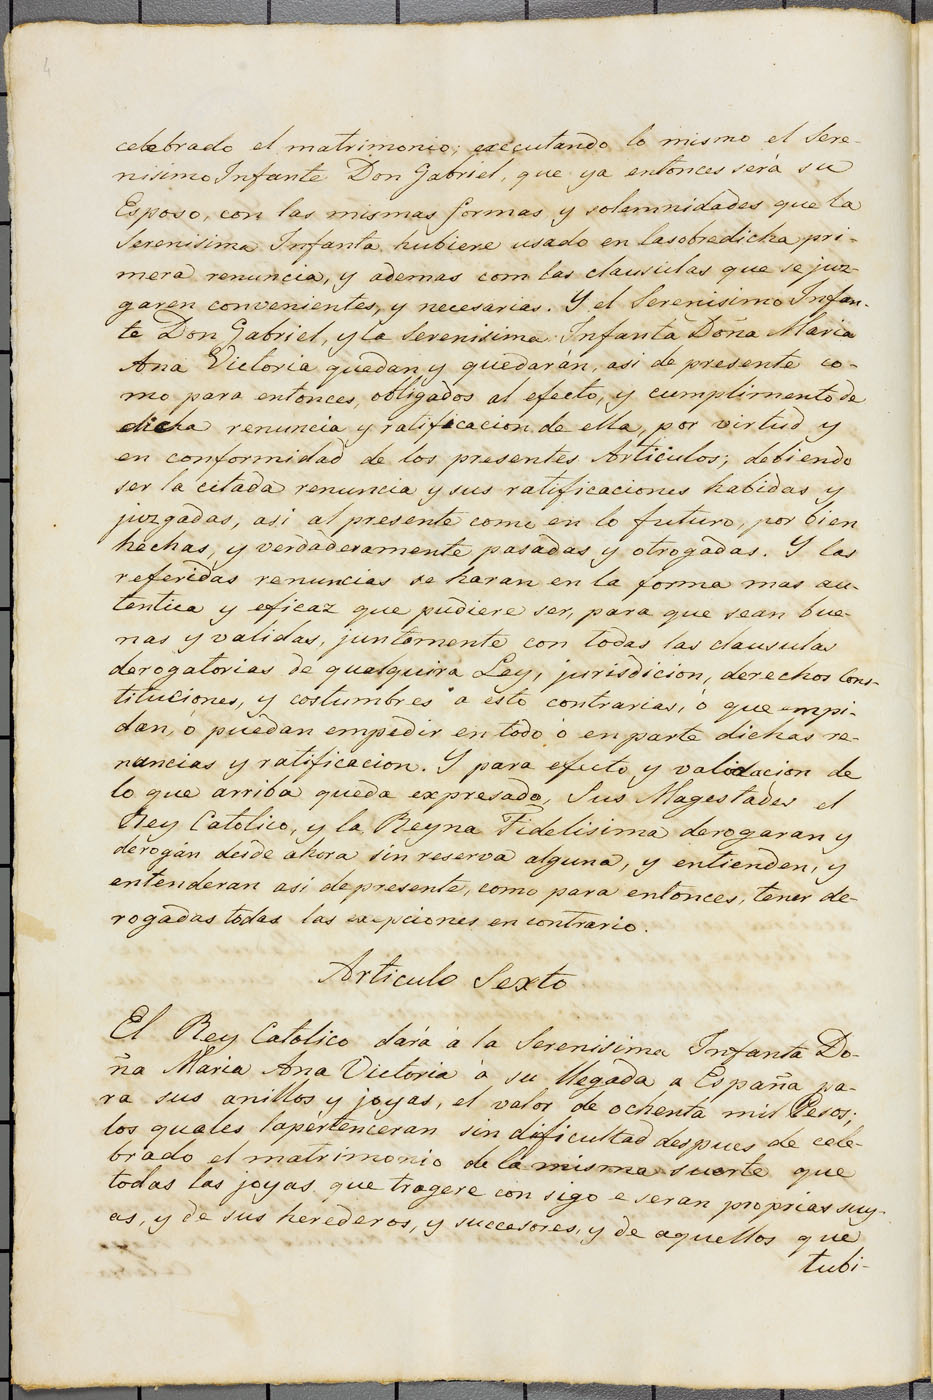 4
celebrado el matrimonio; executando lo mismo el Sere-
nisimo Infante Don Gabriel, que ya entonces será su
Esposo, con las mismas formas y solemnidades que la
Serenisima Infanta hubiere usado en lasobredicha pri-
mera renuncia, y ademas com las clausulas que se juz-
garen convenientes, y necesarias. Y el Serenisimo Infan-
te Don Gabriel, y la Serenisima Infanta Doña Maria
Ana Victoria quedan y quedarán, asi de presente co-
mo para entonces, obligados al efecto, y cumplimento de
dicha renuncia y ratificacion de ella, por virtud y
en conformidad de los presentes Articulos; debiendo
ser la citada renuncia y sus ratificaciones habidas y
juzgadas, asi al presente como en lo futuro, por bien
hechas, y verdaderamente pasadas y otrogadas. Y las
referidas renuncias se haran en la forma mas au-
tentica y eficaz que pudiere ser, para que sean bue-
nas y validas, juntamente con todas las clausulas
derogatorias de qualquira Ley, jurisdicion, derechos Cons-
tituciones, y costumbres a esto contrarias, ó que empi-
dan, ó puedan empedir en todo ó en parte dichas re-
nuncias y ratificacion. Y para efecto y validacion de
lo que arriba queda expresado, Sus Magestades el
Rey Catolico, y la Reyna Fidelisima derogaran y
derogán desde ahora sin reserva alguna, y entienden, y
entenderan asi de presente, como para entonces, tener de-
rogadas todas las exepciones en contrario.
Articulo Sexto
El Rey Catolico dará á la Serenisima Infanta Do-
ña Maria Ana Victoria á su llegada a España pa-
ra sus anillos y joyas, el valor de ochenta mil Pesos;
los quales lapertenceran sin dificultad despues de cele-
brado el matrimonio de la misma suerte que
todas las joyas que tragere con sigo e seran proprias suy-
as, y de sus herederos, y successores, y de aquellos que
tubi-